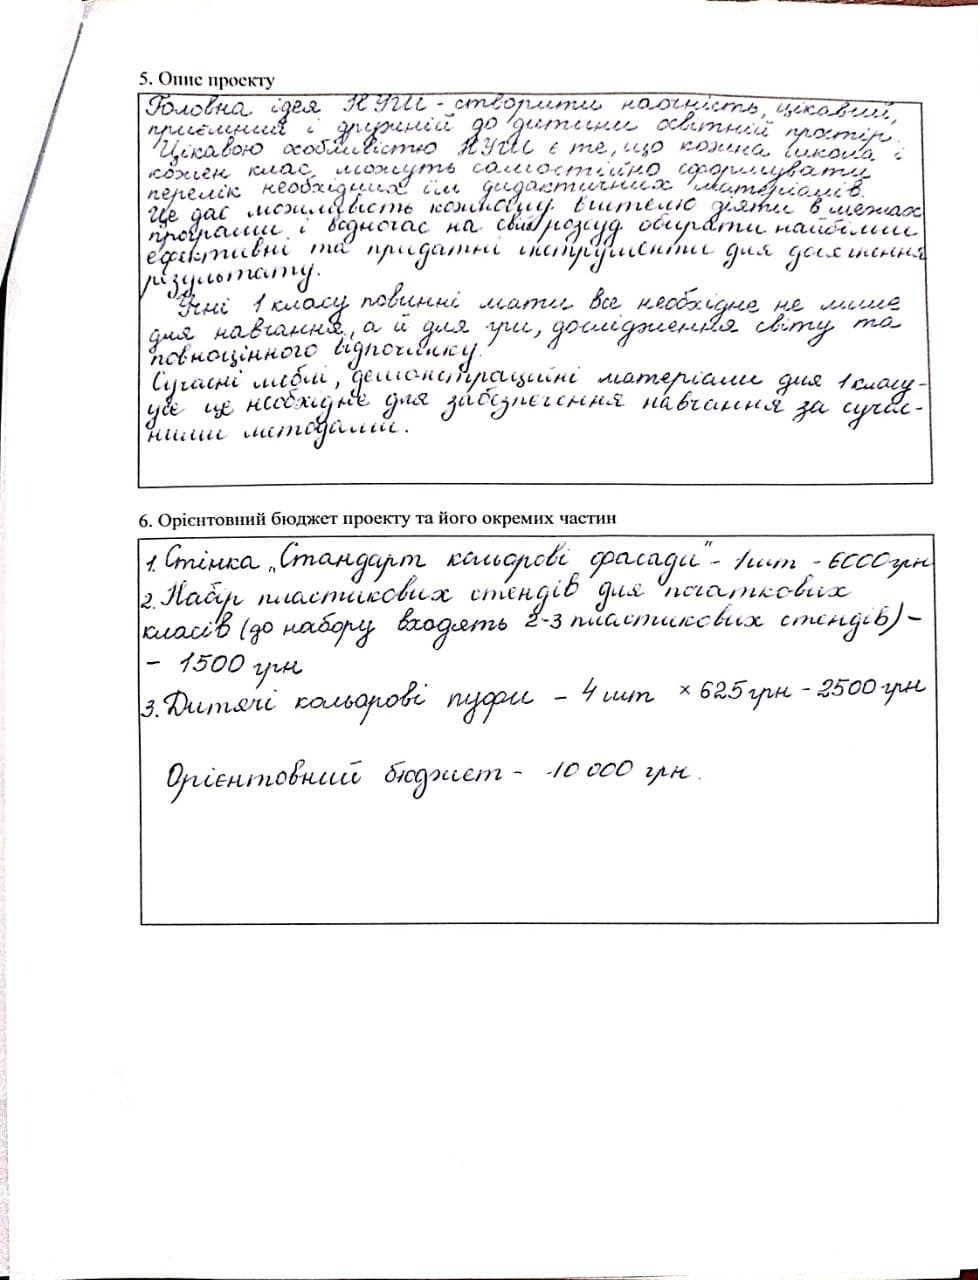 5. Опис проєкту
Головна ідея НУШ - створити наочність, цікавий,
приємний і дружній до дитини освітній простір.
Цікавою особливістю НУШ є те, що кожна школа і
кожен клас можуть самостійно сформувати
перелік необхідних їм дидактичних матеріалів.
Це дає можливість кожному вчителю діяти в межах
програми і водночас на свій розсуд обирати найбільш
ефективні та придатні інструменти для досягнення
результату.
Учні 1 класу повинні мати все необхідне не лише
для навчання, а й для гри, дослідження світу та
повноцінного відпочинку.
Сучасні меблі, демонстраційні матеріали для 1 класу -
усе це необхідне для забезпечення навчання за сучас-
ними методами.
6. Орієнтовний бюджет проекту та його окремих частин
1. Стінка „Стандарт кольорові фасади" - 1 шт - 6000 грн
2. Набір пластикових стендів для початкових
класів (до набору входять 2-3 пластикових стендів) -
- 1500 грн
3. Дитячі кольорові пуфи - 4 шт × 625 грн - 2500 грн
Орієнтовний бюджет - 10 000 грн.